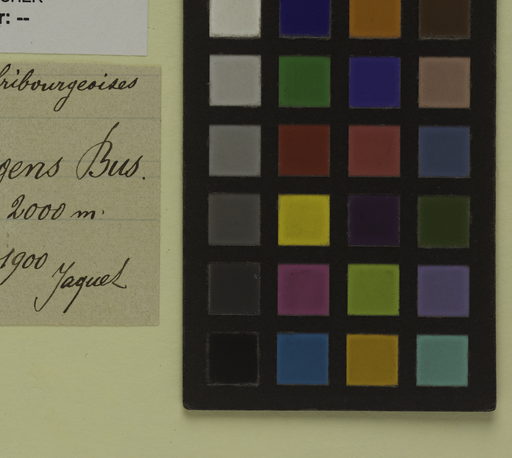 r: --
ribourgeoises
gens Bus.
2000 m.
1900
Jaquet